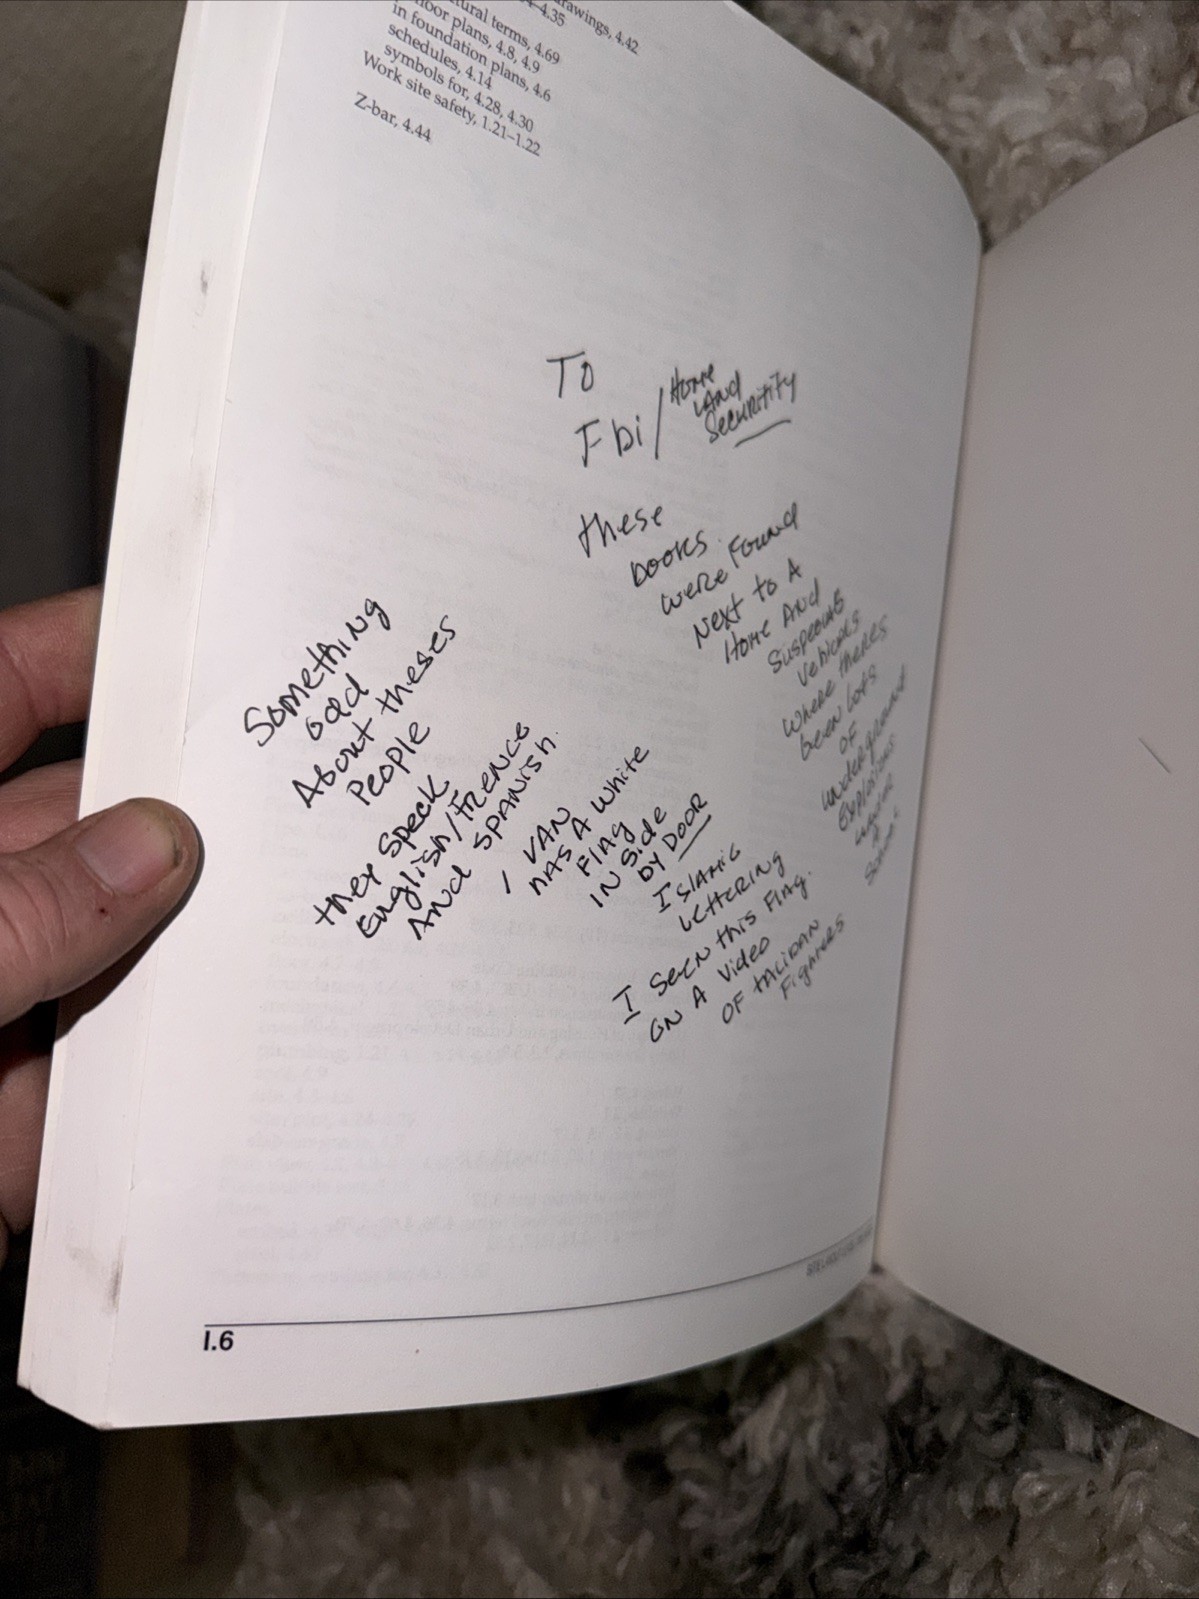 rawings, 4.42
4–4.35
tural terms, 4.69
oor plans, 4.8, 4.9
in foundation plans, 4.6
schedules, 4.14
symbols for, 4.28, 4.30
Work site safety, 1.21–1.22
Z-bar, 4.44
TO
Fbi / Home
LAND
Securitity
these
books
were Found
Next to A
Home And
Vehicals
where theres
been lots
OF
undergrount
Explosions
A
Something
odd
About theses
People
they Speck
English/FRENCE
And SPANish.
1 VAN
HAS A White
FlAg
IN Side
by DOOR
ISlAmic
LETTERING
I Seen this FlAg
ON A Video
OF
Fighters
I.6